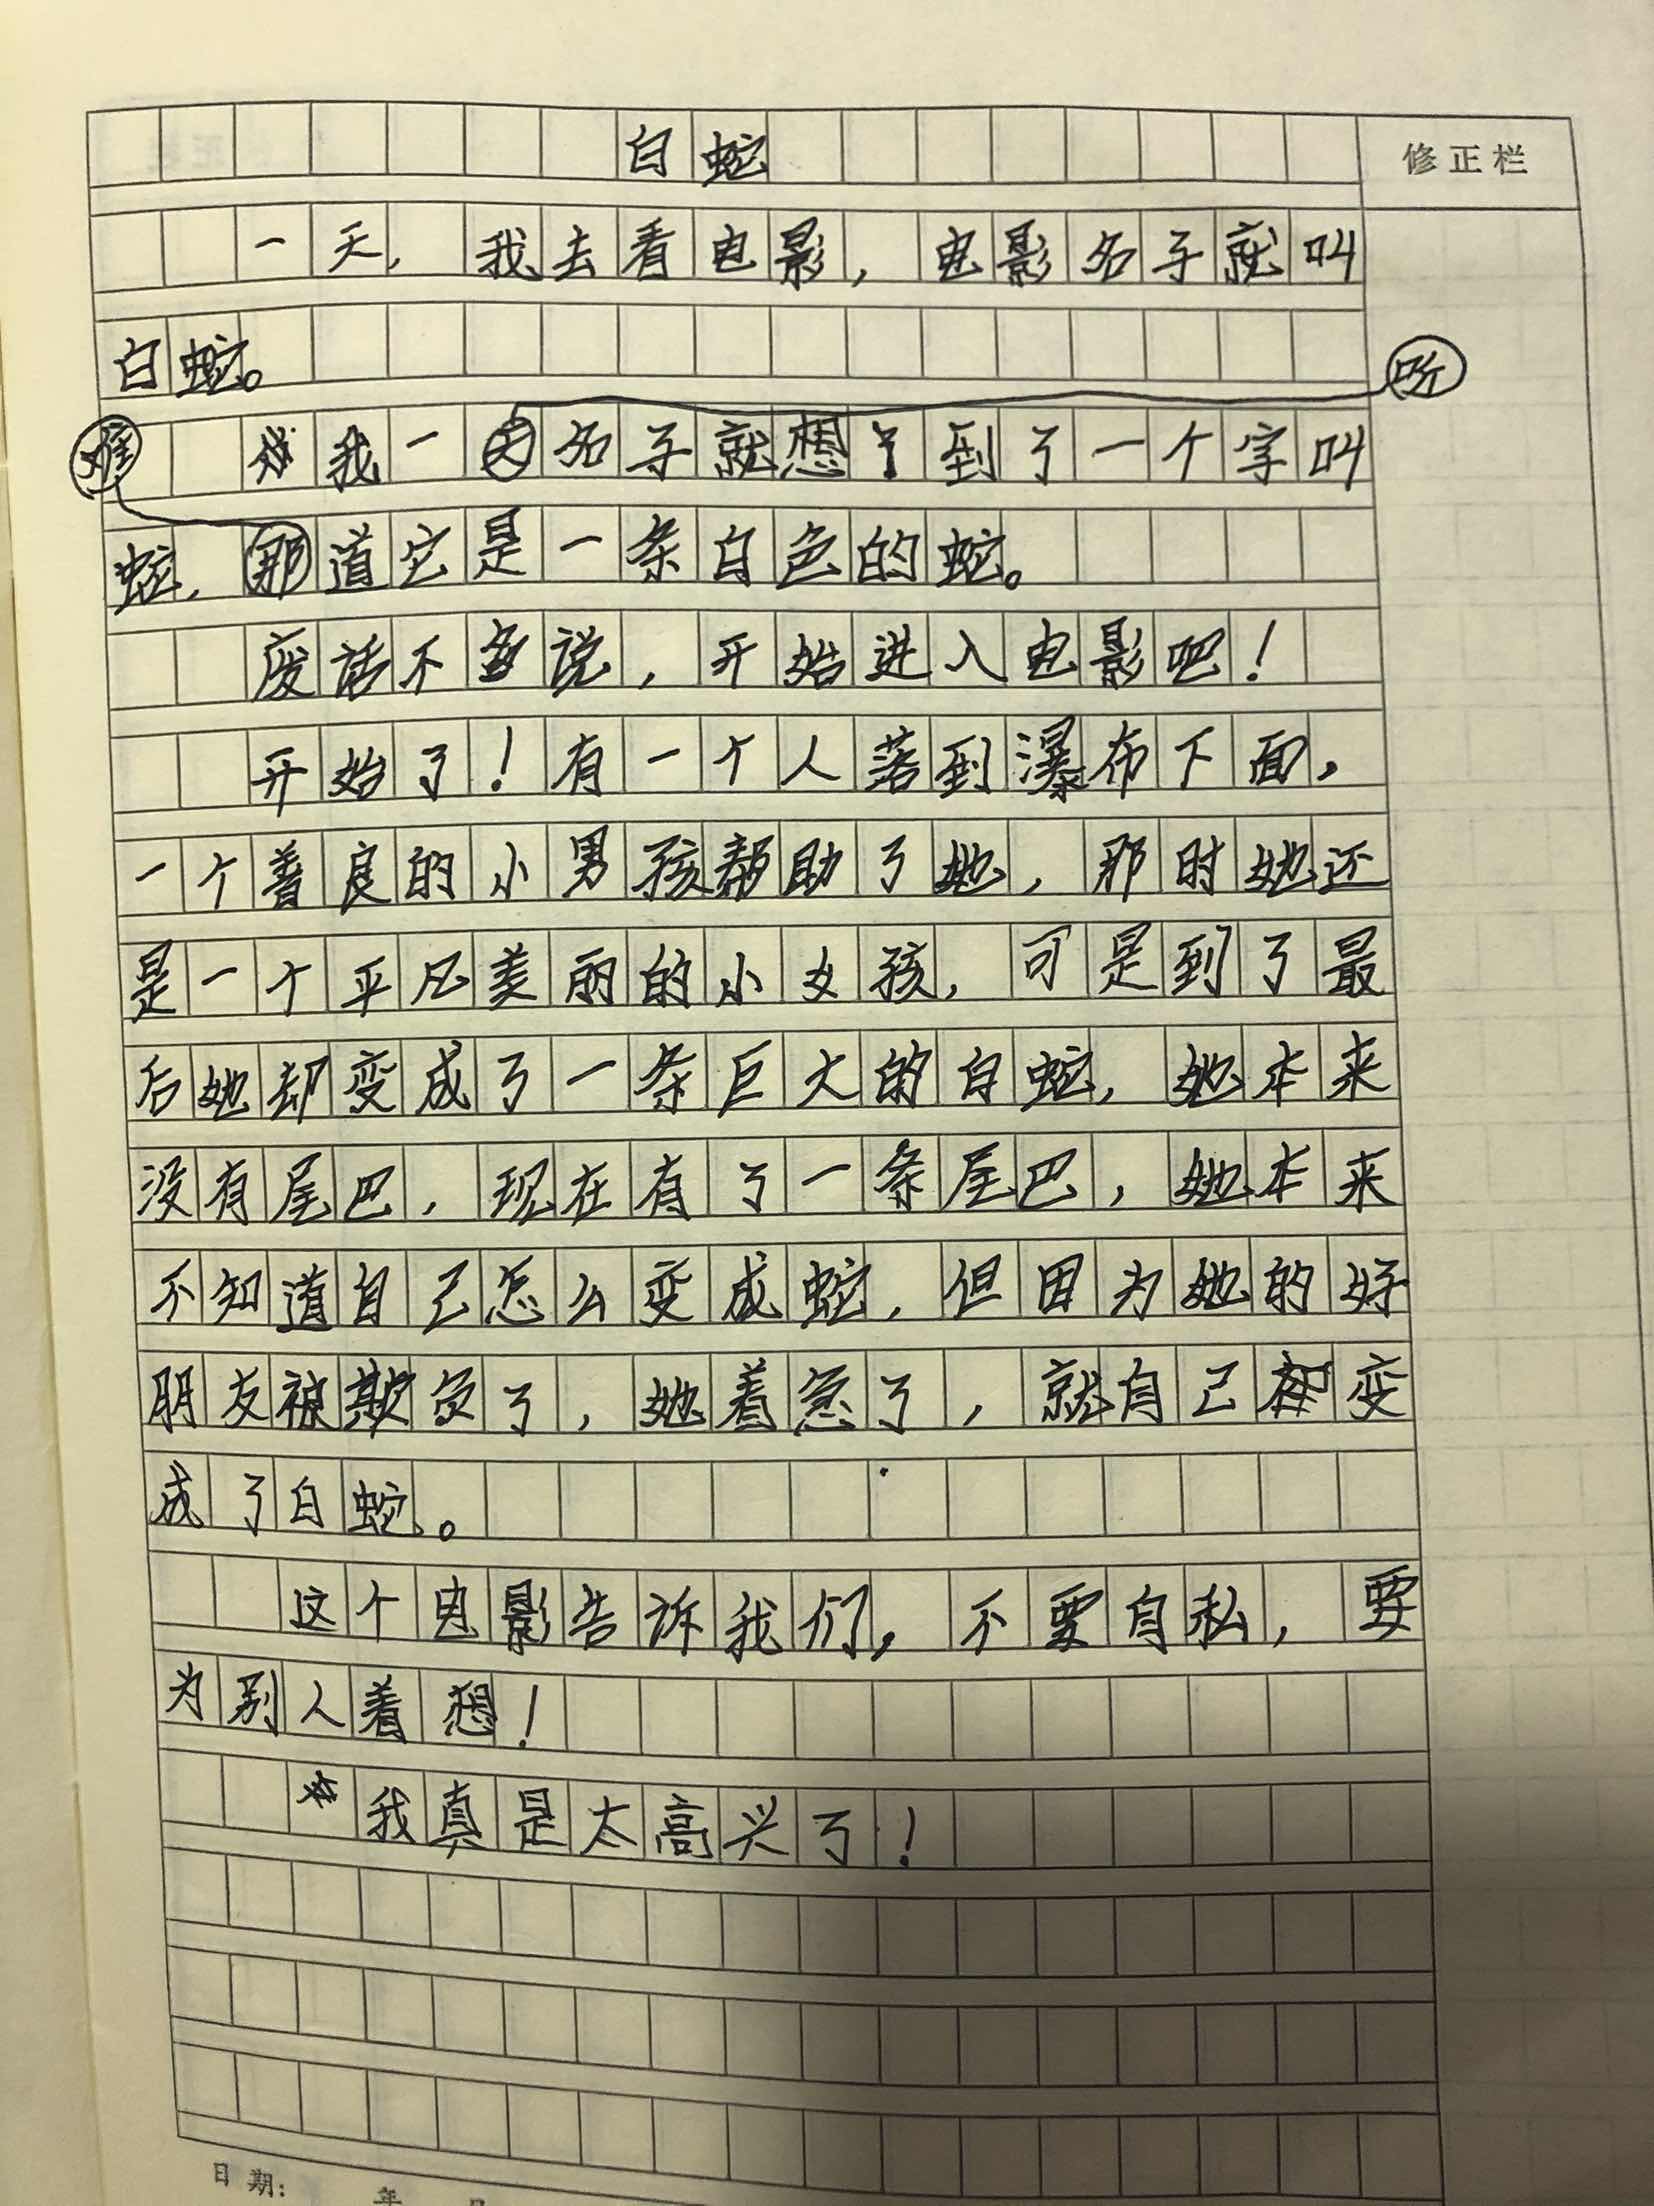 白蛇
修正栏
一天，我去看电影，电影名子就叫
白蛇。
听
我一名子就想到了一个字叫
难
蛇，那道它是一条白色的蛇。
废话不多说，开始进入电影吧！
开始了！有一个人落到瀑布下面，
一个善良的小男孩帮助了她，那时她还
是一个平凡美丽的小女孩，可是到了最
后她却变成了一条巨大的白蛇，她本来
没有尾巴，现在有了一条尾巴，她本来
不知道自己怎么变成蛇，但因为她的好
朋友被欺负了，她着急了，就自己变
成了白蛇。
这个电影告诉我们，不要自私，要
为别人着想！
我真是太高兴了！
日期： 年